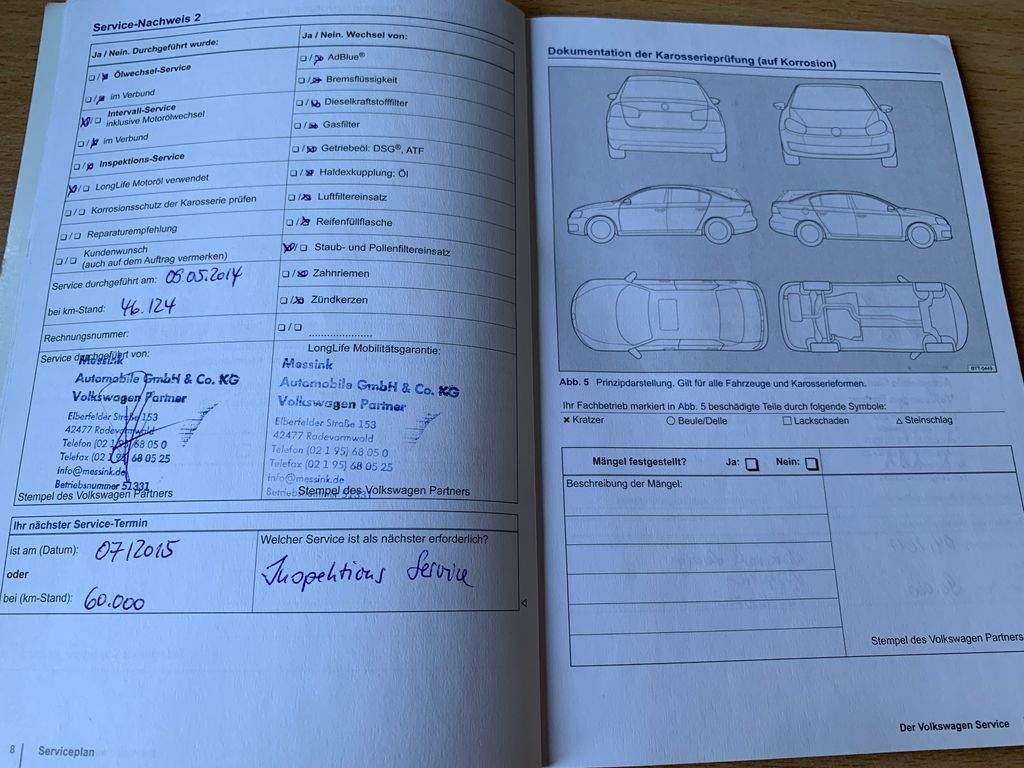 Service-Nachweis 2
Ja / Nein. Durchgeführt wurde:
☐ / ☒ Ölwechsel-Service
☐ / ☒ im Verbund
☒ / ☐ Intervall-Service
inklusive Motorölwechsel
☐ / ☒ im Verbund
☐ / ☒ Inspektions-Service
☒ / ☐ LongLife Motoröl verwendet
☐ / ☐ Korrosionsschutz der Karosserie prüfen
☐ / ☐ Reparaturempfehlung
☐ / ☐ Kundenwunsch
(auch auf dem Auftrag vermerken)
Service durchgeführt am: 08.05.2014
bei km-Stand: 46.124
Rechnungsnummer:
Service durchgeführt von:
Messink
Automobile GmbH & Co. KG
Volkswagen Partner
Elberfelder Straße 153
42477 Radevormwald
Telefon (02 1 95) 68 05 0
Telefax (02 1 95) 68 05 25
info@messink.de
Betriebsnummer 51331
Stempel des Volkswagen Partners
Ja / Nein. Wechsel von:
☐ / ☒ AdBlue®
☐ / ☒ Bremsflüssigkeit
☐ / ☒ Dieselkraftstofffilter
☐ / ☒ Gasfilter
☐ / ☒ Getriebeöl: DSG®, ATF
☐ / ☒ Haldexkupplung: Öl
☐ / ☒ Luftfiltereinsatz
☐ / ☒ Reifenfüllflasche
☒ / ☐ Staub- und Pollenfiltereinsatz
☐ / ☒ Zahnriemen
☐ / ☒ Zündkerzen
☐ / ☐ ....................
LongLife Mobilitätsgarantie:
Messink
Automobile GmbH & Co. KG
Volkswagen Partner
Elberfelder Straße 153
42477 Radevormwald
Telefon (02 1 95) 68 05 0
Telefax (02 1 95) 68 05 25
info@messink.de
Stempel des Volkswagen Partners
Ihr nächster Service-Termin
ist am (Datum): 07/2015
oder
bei (km-Stand): 60.000
Welcher Service ist als nächster erforderlich?
Inspektions Service
8 Serviceplan
Dokumentation der Karosserieprüfung (auf Korrosion)
BTT-0449
Abb. 5 Prinzipdarstellung. Gilt für alle Fahrzeuge und Karosserieformen.
Ihr Fachbetrieb markiert in Abb. 5 beschädigte Teile durch folgende Symbole:
✖ Kratzer ○ Beule/Delle □ Lackschaden △ Steinschlag
Mängel festgestellt? Ja: ☐ Nein: ☐
Beschreibung der Mängel:
Stempel des Volkswagen Partners
Der Volkswagen Service